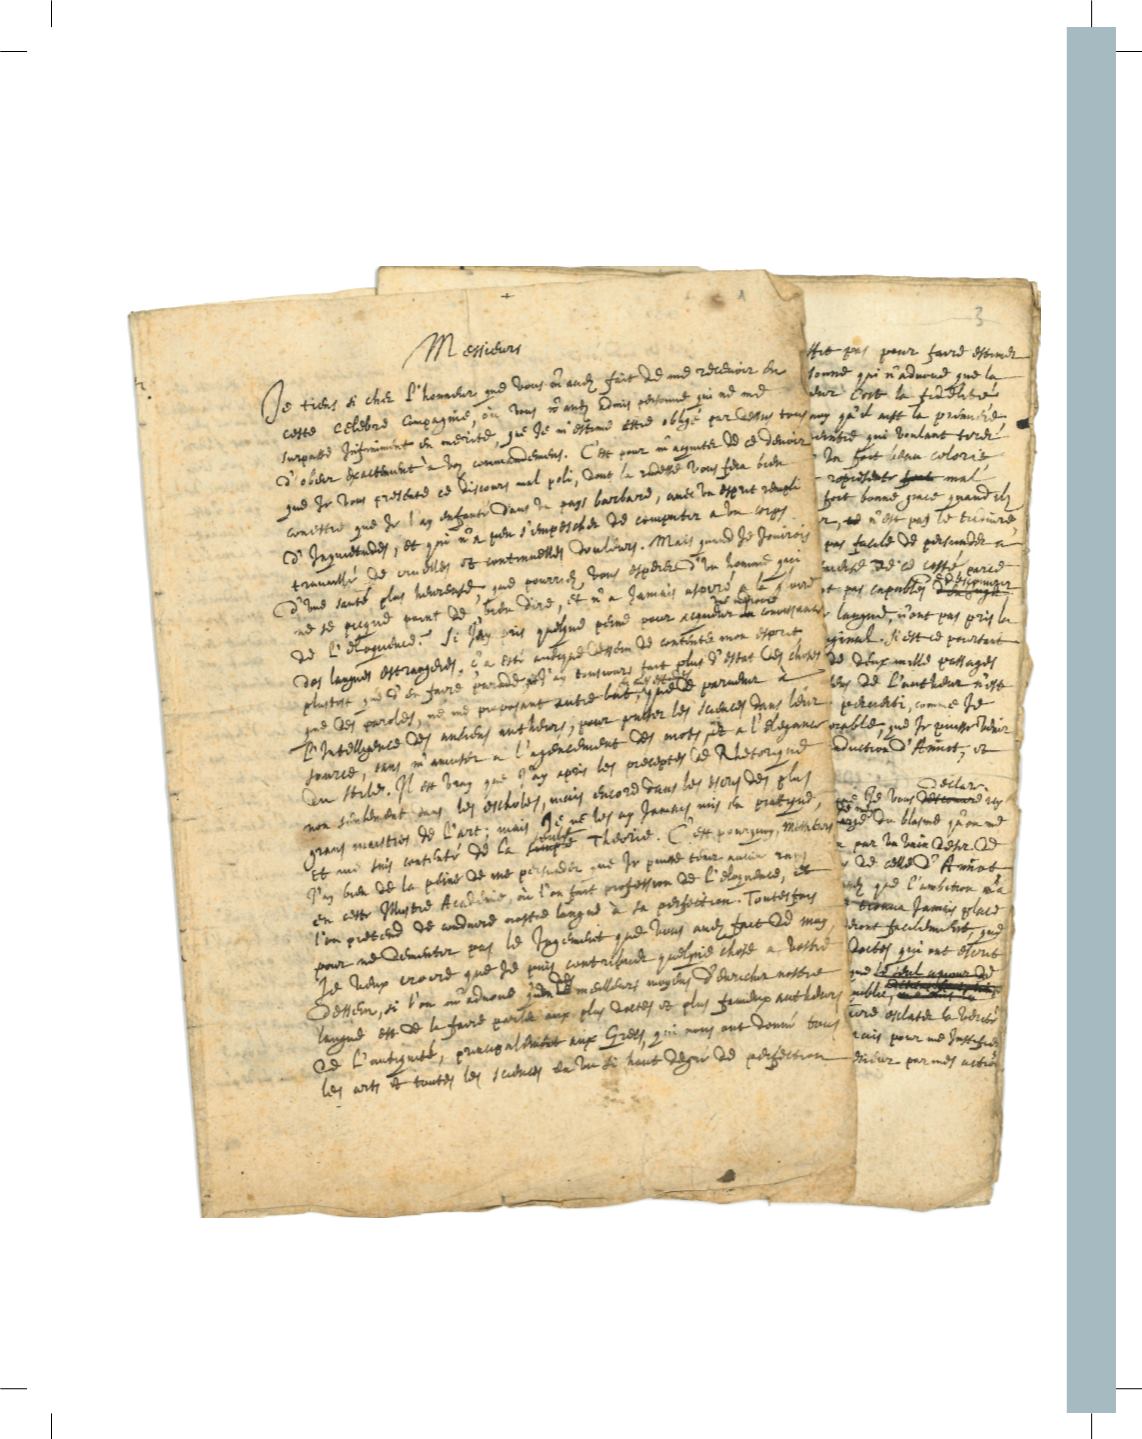 Messieurs
Je tiens si cher l'honneur que vous m'avez fait de me recevoir en
cette celebre Compagnie, où vous n'avez admis personne qui ne me
surpasse infiniment en merite, que je m'estime estre obligé par dessus tous
d'obeir exactement à vos commandemens. C'est pour m'acquiter de ce devoir
que je vous presente ce discours mal poli, dont la rudesse vous fera bien
conoistre que je l'ay enfanté dans un pays barbare, avec un esprit rempli
d'inquietudes, et qui n'a peu s'empescher de compatir a un corps
travaillé de cruelles et continuelles douleurs. Mais quand je jouirois
d'une santé plus heureuse, que pourriez vous esperer d'un homme qui
ne se picque point de bien dire, et n'a jamais aspiré a la gloire
de l'eloquence. Si j'ay pris quelque peine pour acquerir la conoissance
des langues estrangeres, ç'a esté avecque dessein de contenter mon esprit
plustost que d'en faire parade, j'ay tousjours fait plus d'estat des choses
que des paroles, ne me proposant autre but, que de parvenir à
l'intelligence des anciens autheurs, pour puiser les sciences dans leur
source, sans m'amuser a l'agencement des mots, et a l'elegance
du stile. Il est vray que j'ay apris les preceptes de Rhetorique
non seulement dans les escholes, mais encore dans les escris des plus
grans maistres de l'art; mais je ne les ay jamais mis en pratique,
et me suis contenté de la seule Theorie. C'est pourquoy, Messieurs
j'ay bien de la peine de me persuader que je puisse tenir aucun rang
en cette Illustre Academie, où l'on fait profession de l'eloquence, et
l'on pretend de conduire nostre langue à sa perfection. Toutesfois
pour ne dementir pas le jugement que vous avez fait de moy,
je veux croire que je puis contribuer quelque chose a vostre
dessein, si l'on m'advoue qu'un des meilleurs moyens d'enrichir nostre
langue est de la faire parler aux plus doctes et plus fameux autheurs
de l'antiquité, principalement aux Grecs, qui nous ont donné tous
les arts et toutes les sciences en un si haut degré de perfection
3
pas pour faire estimer
qui n'advoue que la
C'est la fidelité
qu'il aist la premiere
qui voulant
un fort beau coloris
mal
fort bonne grace quand ils
n'est pas le
pas facile de persuader a
de ce costé, parce
pas capables
langue, n'ont pas pris la
Si est ce pourtant
de deux mille passages
de l'autheur n'est
perverti, comme je
que je puisse
d'Amiot, et
declar.
je vous
du blasme qu'on me
par un vain desir de
de celle d'Amiot
que l'ambition n'a
jamais place
facilement, que
doctes qui ont escrit
que le seul amour de
esclater la verité
mais pour me justifier
par mes actions